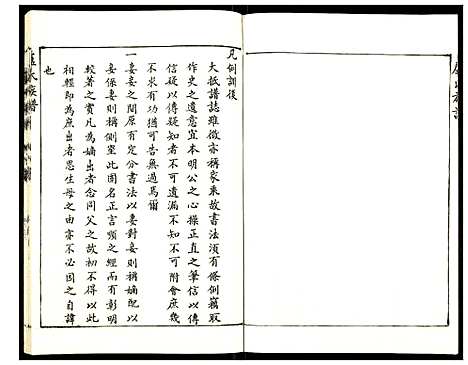 凡例訓後
大抵譜誌雖微亦稱家乘故書法須有條例竊取
作史之遺意宜本明公之心操正直之筆信以傳
信疑以傳疑知者不可遺漏不知者不可附會庶幾
不求有功猶可告無過焉爾
一妻妾之間原有定分書法以妻對妾則稱嫡配以
妾保妻則稱側室此固名正言順之經而有彰明
較著之實凡為嫡出者念同父之故初不得以此
相輕即為庶出者思生母之由亦不必因之自諱
也